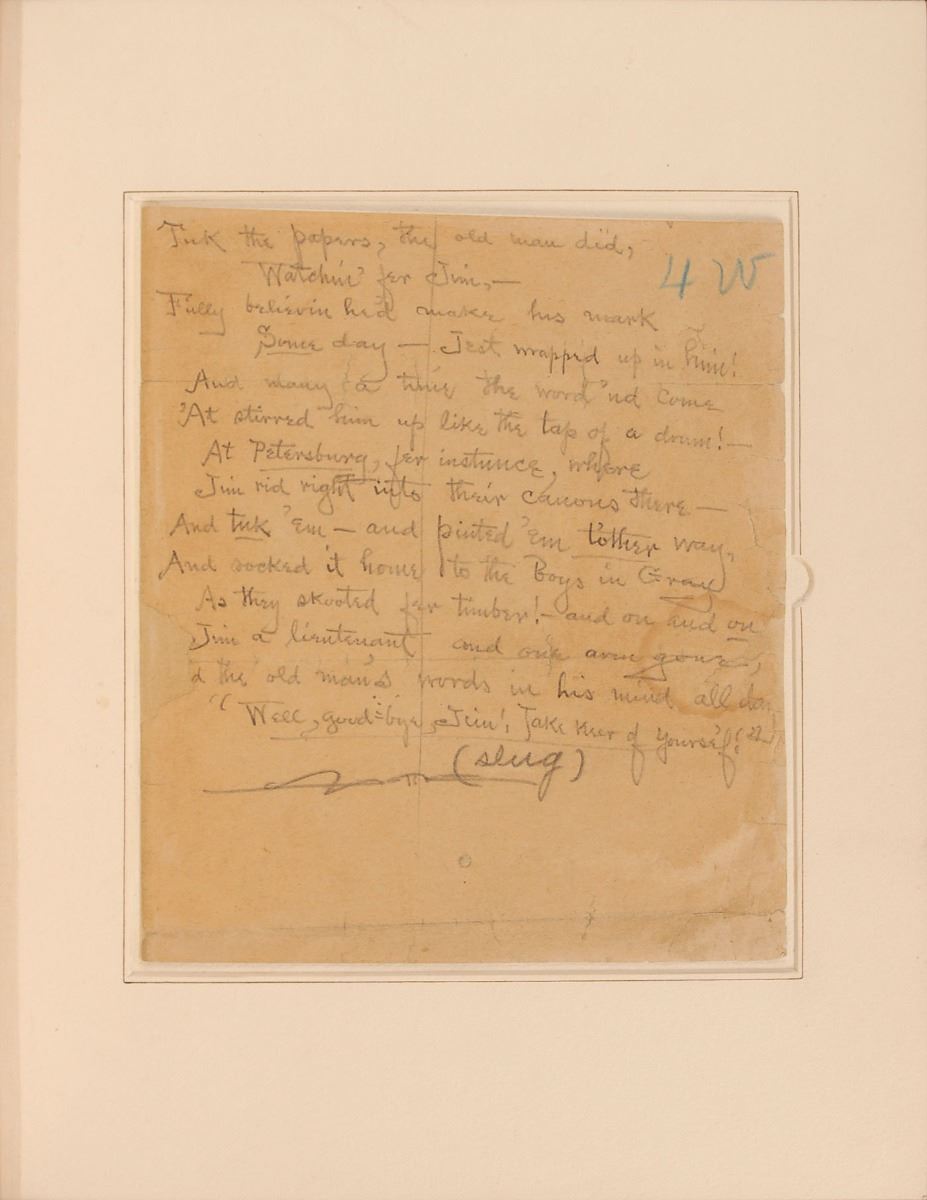 Tuk the papers, the old man did,
4 W
Watchin' fer Jim,—
Fully believin he'd make his mark
Some day — Jest wrapped up in him!
And many a time the word 'ud come
'At stirred him up like the tap of a drum!—
At Petersburg, fer instunce, where
Jim rid right into their canons there —
And tuk 'em — and pinted 'em tother way,
And socked it home to the Boys in Gray
As they skooted fer timber!— and on and on
Jim a lieutenant and one arm gone,
d the old man's words in his mind all day,
"Well, good-bye, Jim!, Take keer of yourse'f!"
(slug)